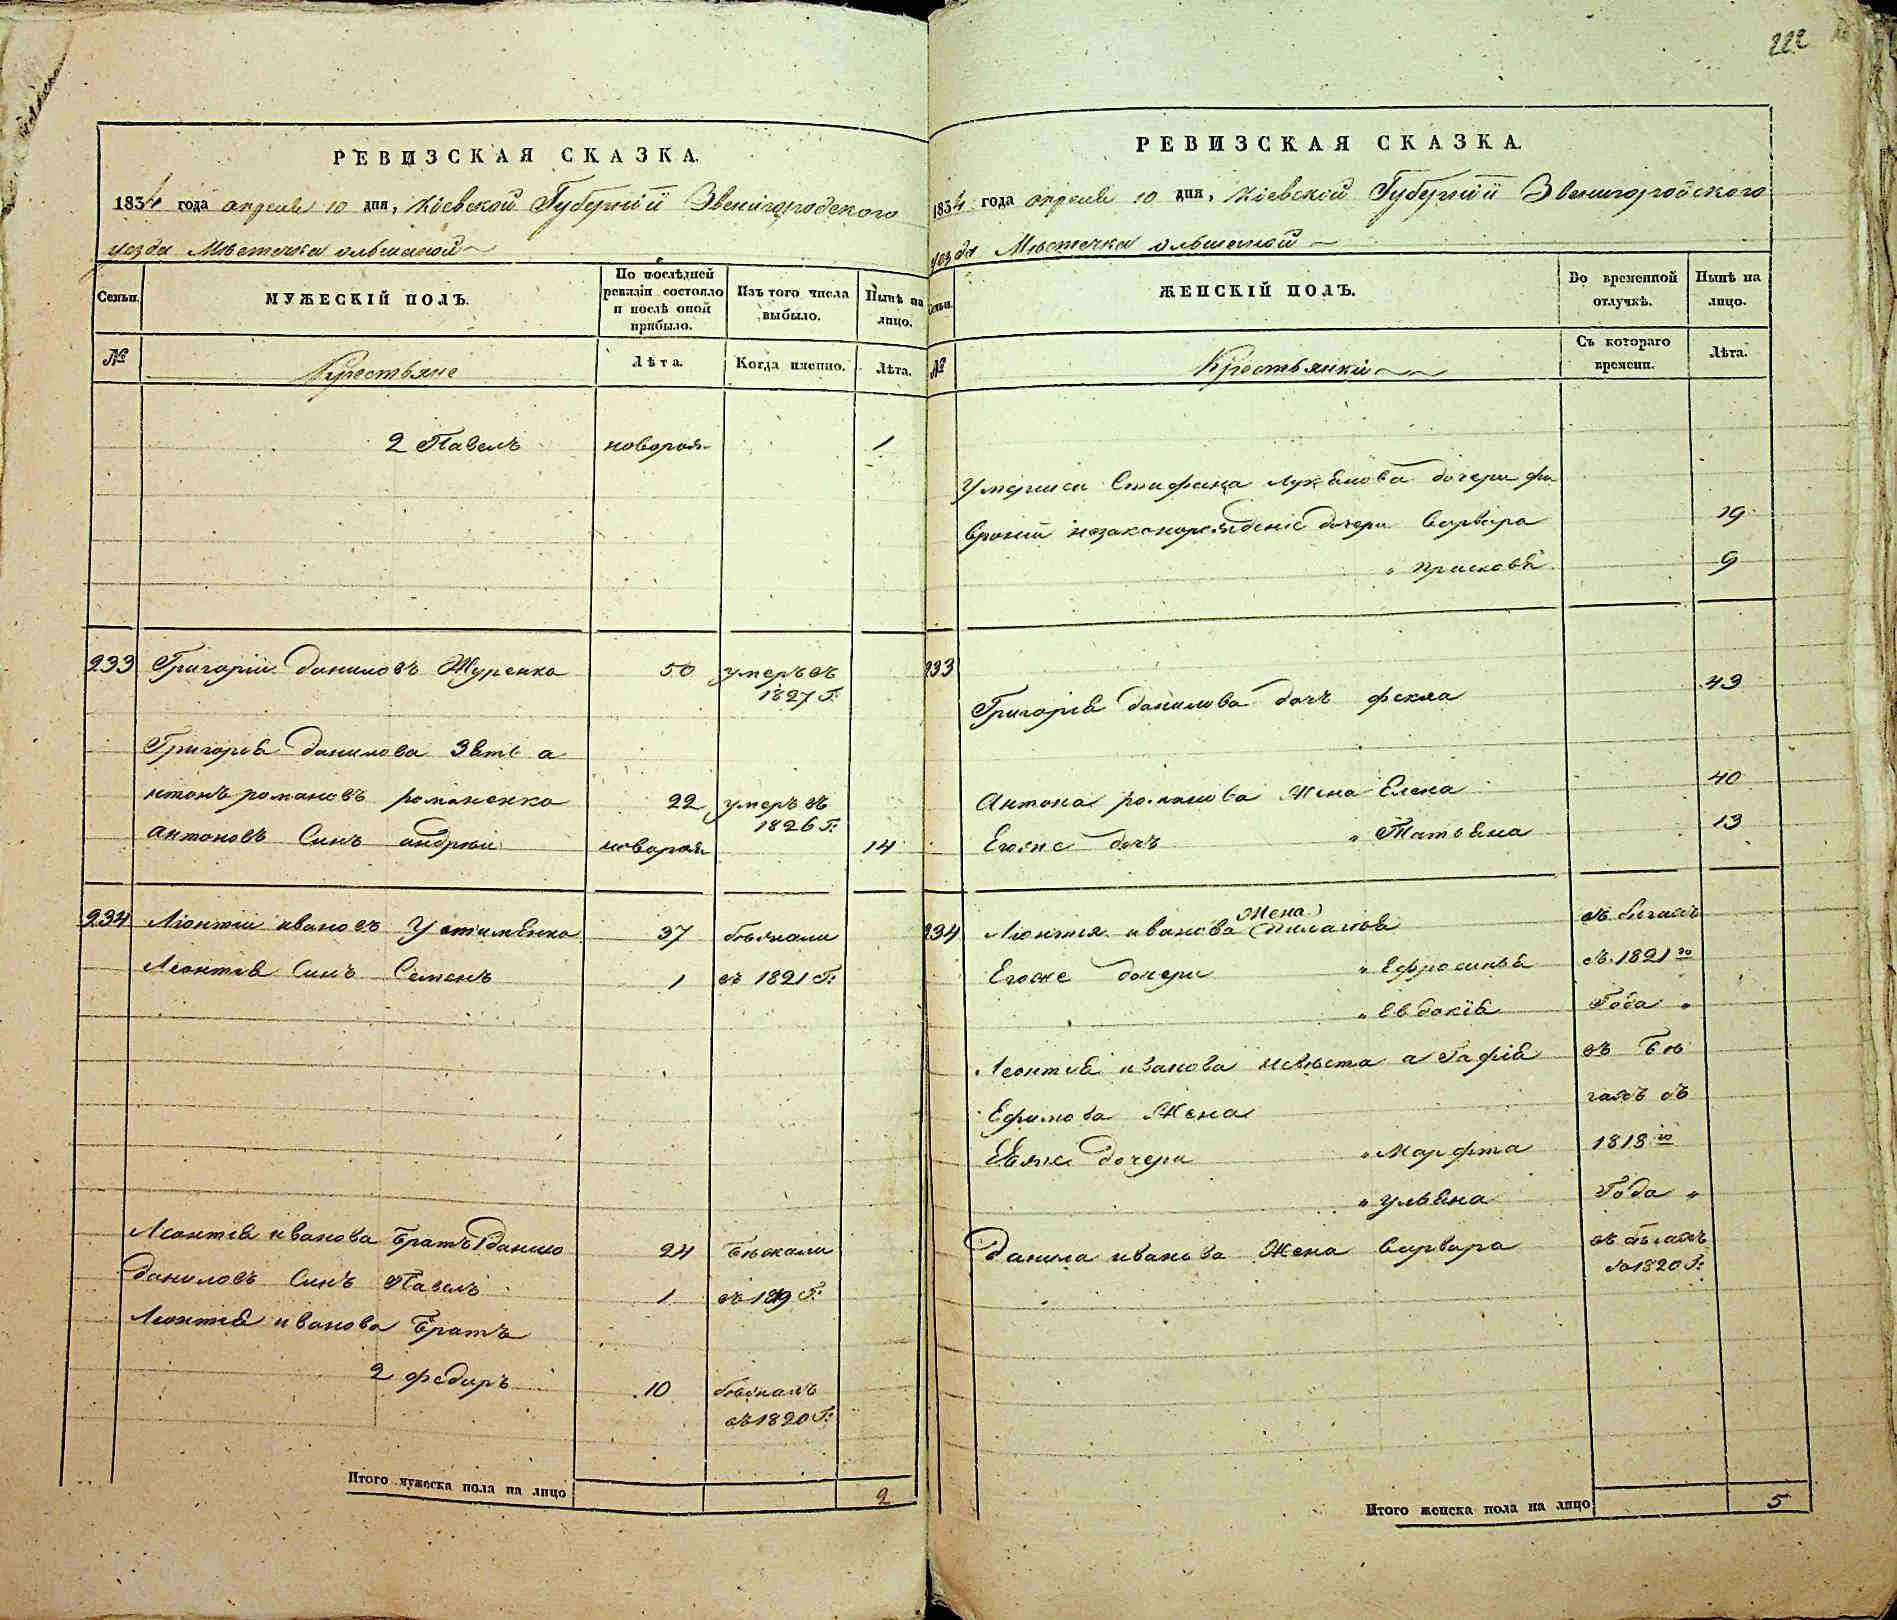 222
РЕВИЗСКАЯ СКАЗКА.
1834 года апреля 10 дня, Кіевской Губерніи Звенигородского
уезда Мѣстечка ольшаной
Семьи.
МУЖЕСКІЙ ПОЛЪ.
По послѣдней
ревизіи состояло
и послѣ оной
прибыло.
Изъ того числа
выбыло.
Нынѣ на
лицо.
№
Крестьяне
Лѣта.
Когда именно.
Лѣта.
2 Павелъ новорож 1
233 Григорій даниловъ Журенко 50 умеръ въ
1827 Г:
Григорія данилова Зять а
нтонъ романовъ романенко 22 умеръ въ
1826 Г:
антоновъ Синъ андрѣи новорож 14
234 Лѣонтіи ивановъ Устименко 37 бѣжали
Леонтія Синъ Семенъ 1 въ 1821 Г:
Леонтія иванова Братъ данило 24 Бѣжали
даниловъ Синъ Павелъ 1 въ 1819 Г:
Леонтія иванова Братъ
2 федиръ 10 бѣжалъ
въ 1820 Г:
Итого мужеска пола на лицо 2
РЕВИЗСКАЯ СКАЗКА.
1834 года апреля 10 дня, Кіевской Губерніи Звенигородского
уезда Мѣстечка ольшаной
Семьи.
ЖЕНСКІЙ ПОЛЪ.
Во временной
отлучкѣ.
Нынѣ на
лицо.
№
Крестьянки
Съ котораго
времени.
Лѣта.
Умершей Стифана Лукянова дочери фе
вроніи незаконорожденіе дочери Варвара 19
" присковя 9
233
Григорія данилова дочъ фекла 43
Антона романова Жена Елена 40
Егоже дочъ " Татьяна 13
234 Лѣонтія иванова Жена въ бегахъ
Егоже дочери " Ефросинья съ 1821 го
" Евдокія Года "
Леонтія иванова невѣста агафія въ Бѣ
Ефимова Жена гахъ съ
Ѣяже дочери " Марфта 1818 го
" ульяна Года "
данила иванова Жена Варвара въ бѣгахъ
съ 1820 Г:
Итого женска пола на лицо 5